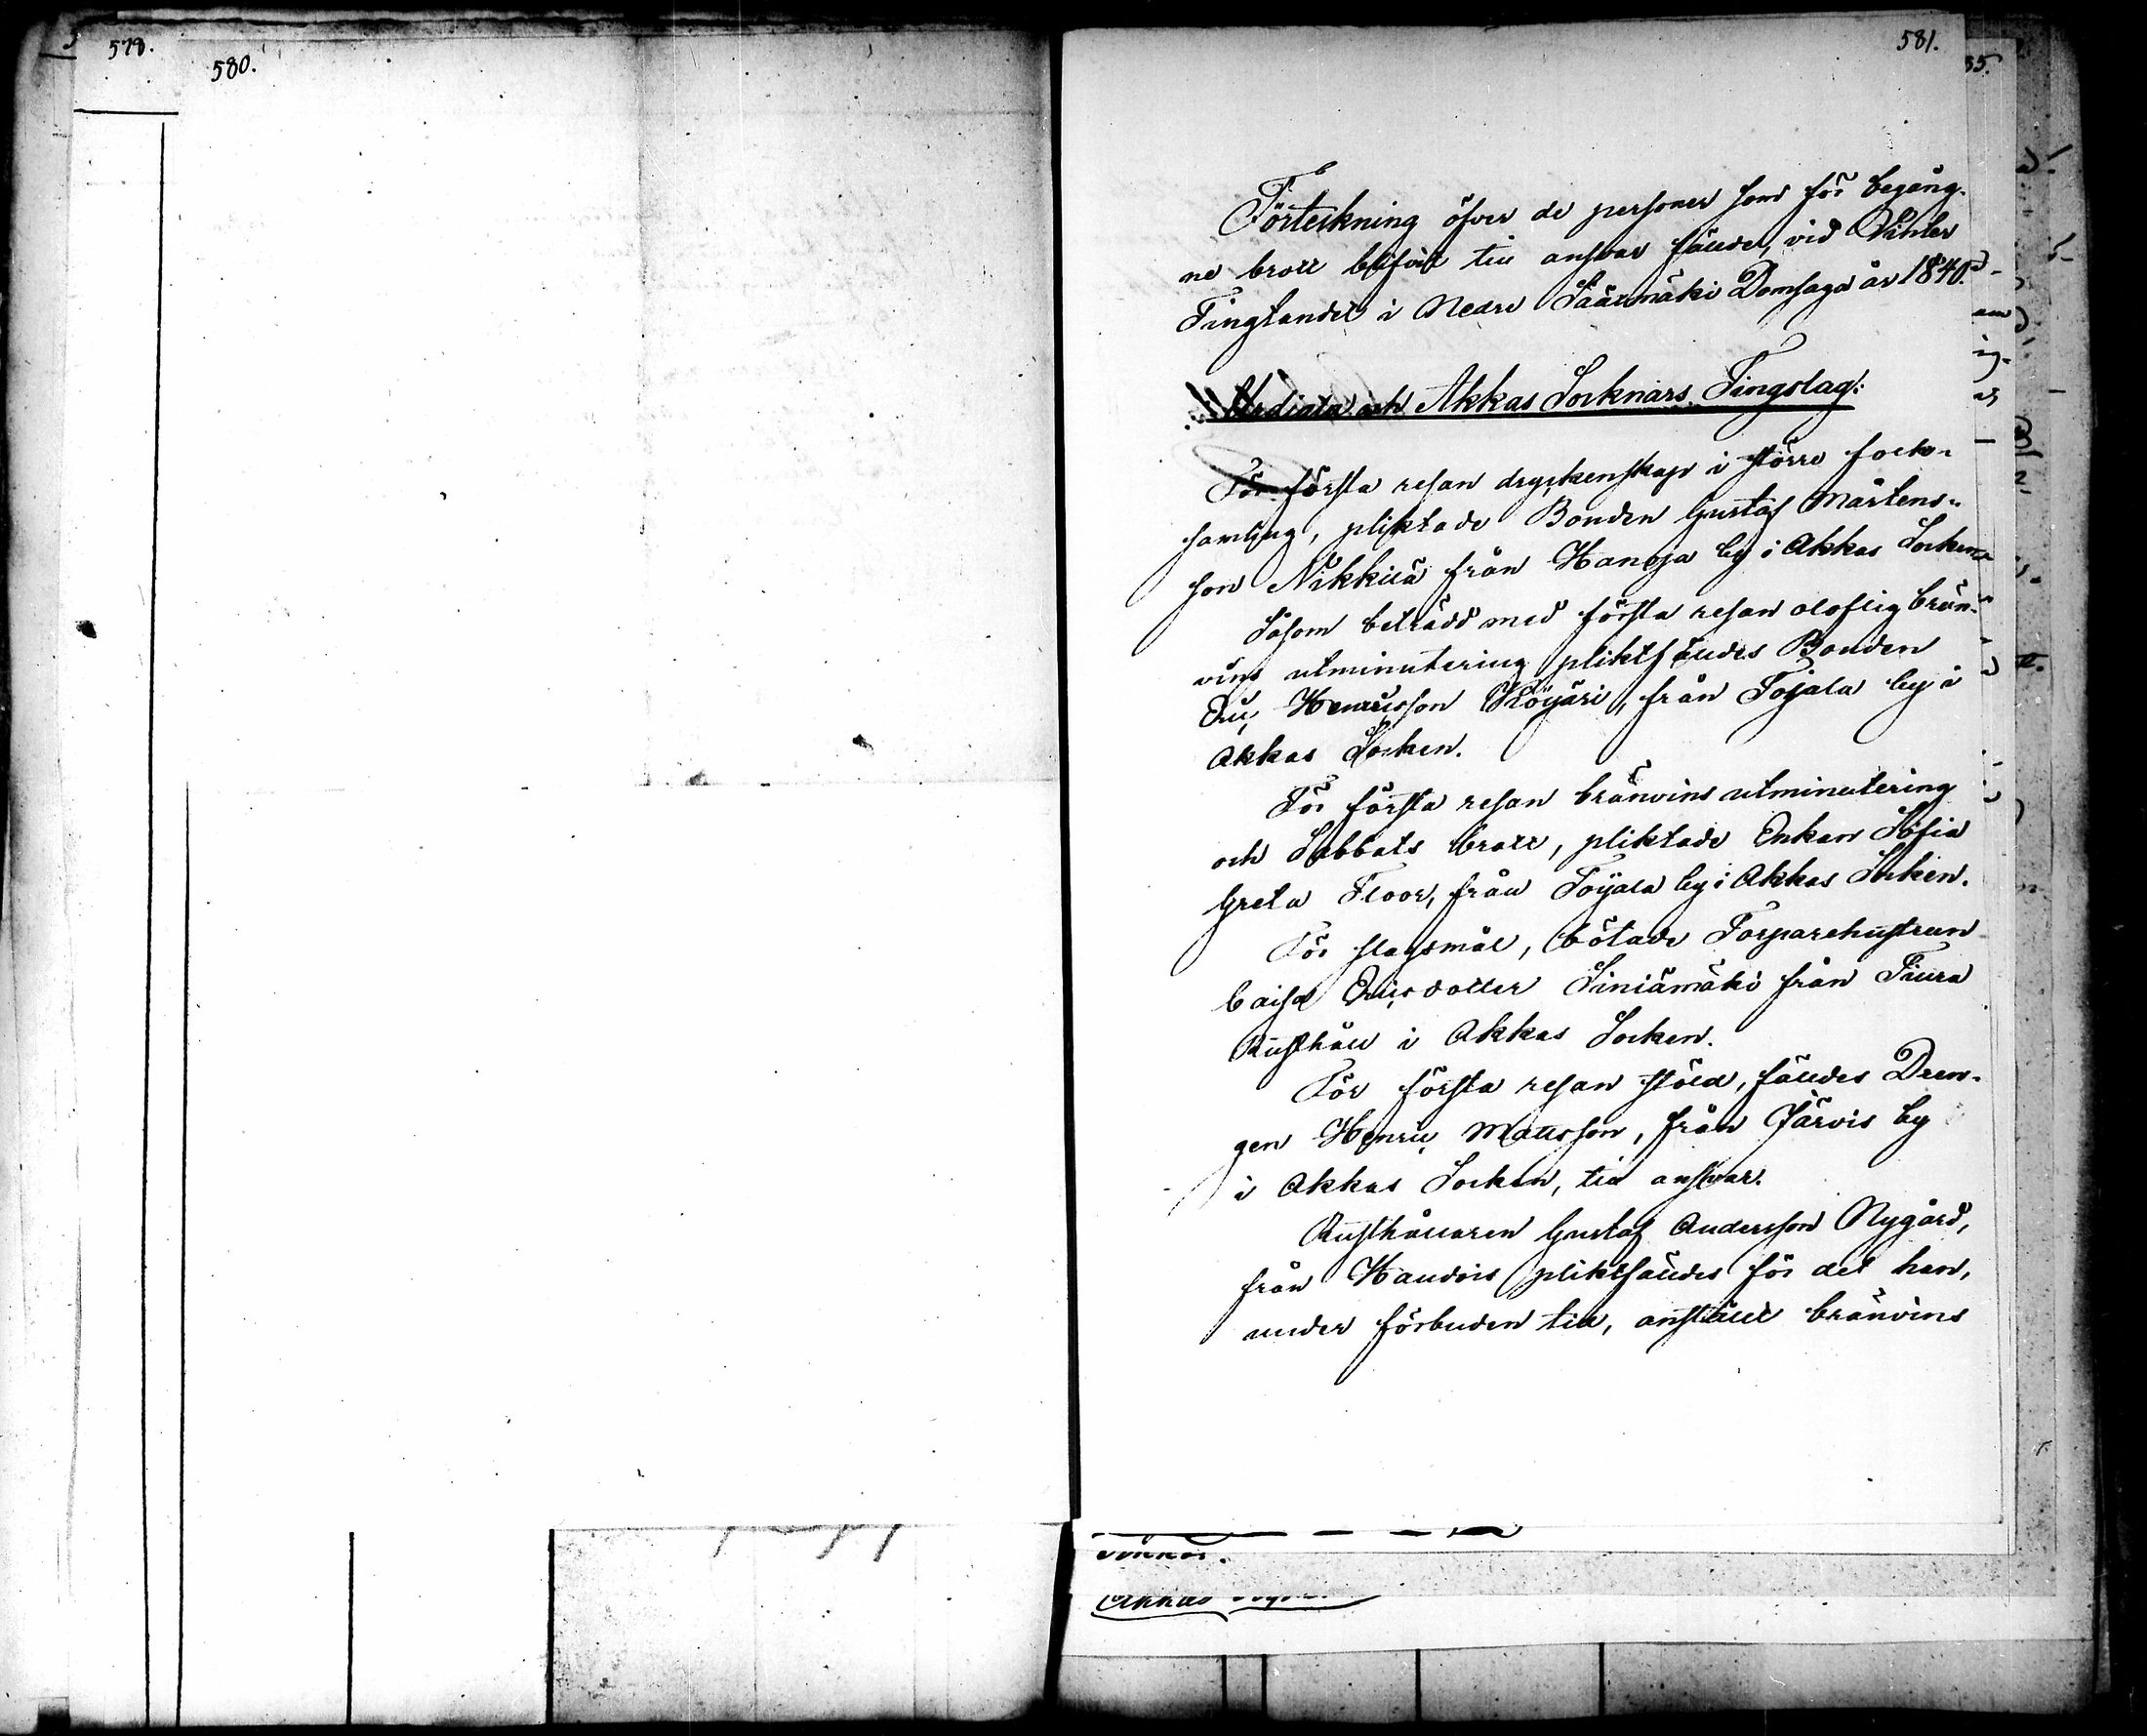 578.
580.
581.
55.
Förteckning öfver de personer som för begång-
ne brott blifvit till ansvar fällde, vid Vinter
Tingtandet i Nedre Säärmäki Domsaga år 1840.
Urdiala och Akkas Socknars Tingslag:
För första resan dryckenskap i större folk-
samling, pliktade Bonden Gustaf Mårtens-
son Nikkilä från Hanoja by i Akkas Socken
Såsom beträdd med första resan oloflig brän-
vins utminutering pliktfälldes Bonden
Eric Henricsson Köyäri, från Tojala by i
Akkas Socken.
För första resan bränvins utminutering
och Sabbats brott, pliktade Enkan Sofia
Greta Floor, från Toijala by i Akkas Socken.
För slagsmål, bötade Torparehustrun
Caisa Ericsdotter Siniämäki från
Rusthåll i Akkas Socken.
För första resan stöld, fälldes Dren-
gen Henric Mattsson, från Järvis by
i Akkas Socken, till ansvar.
Rusthållaren Gustaf Andersson Nygård,
från Haudois pliktfälldes för det han,
under förbuden tid, anställt bränvins
Akkas